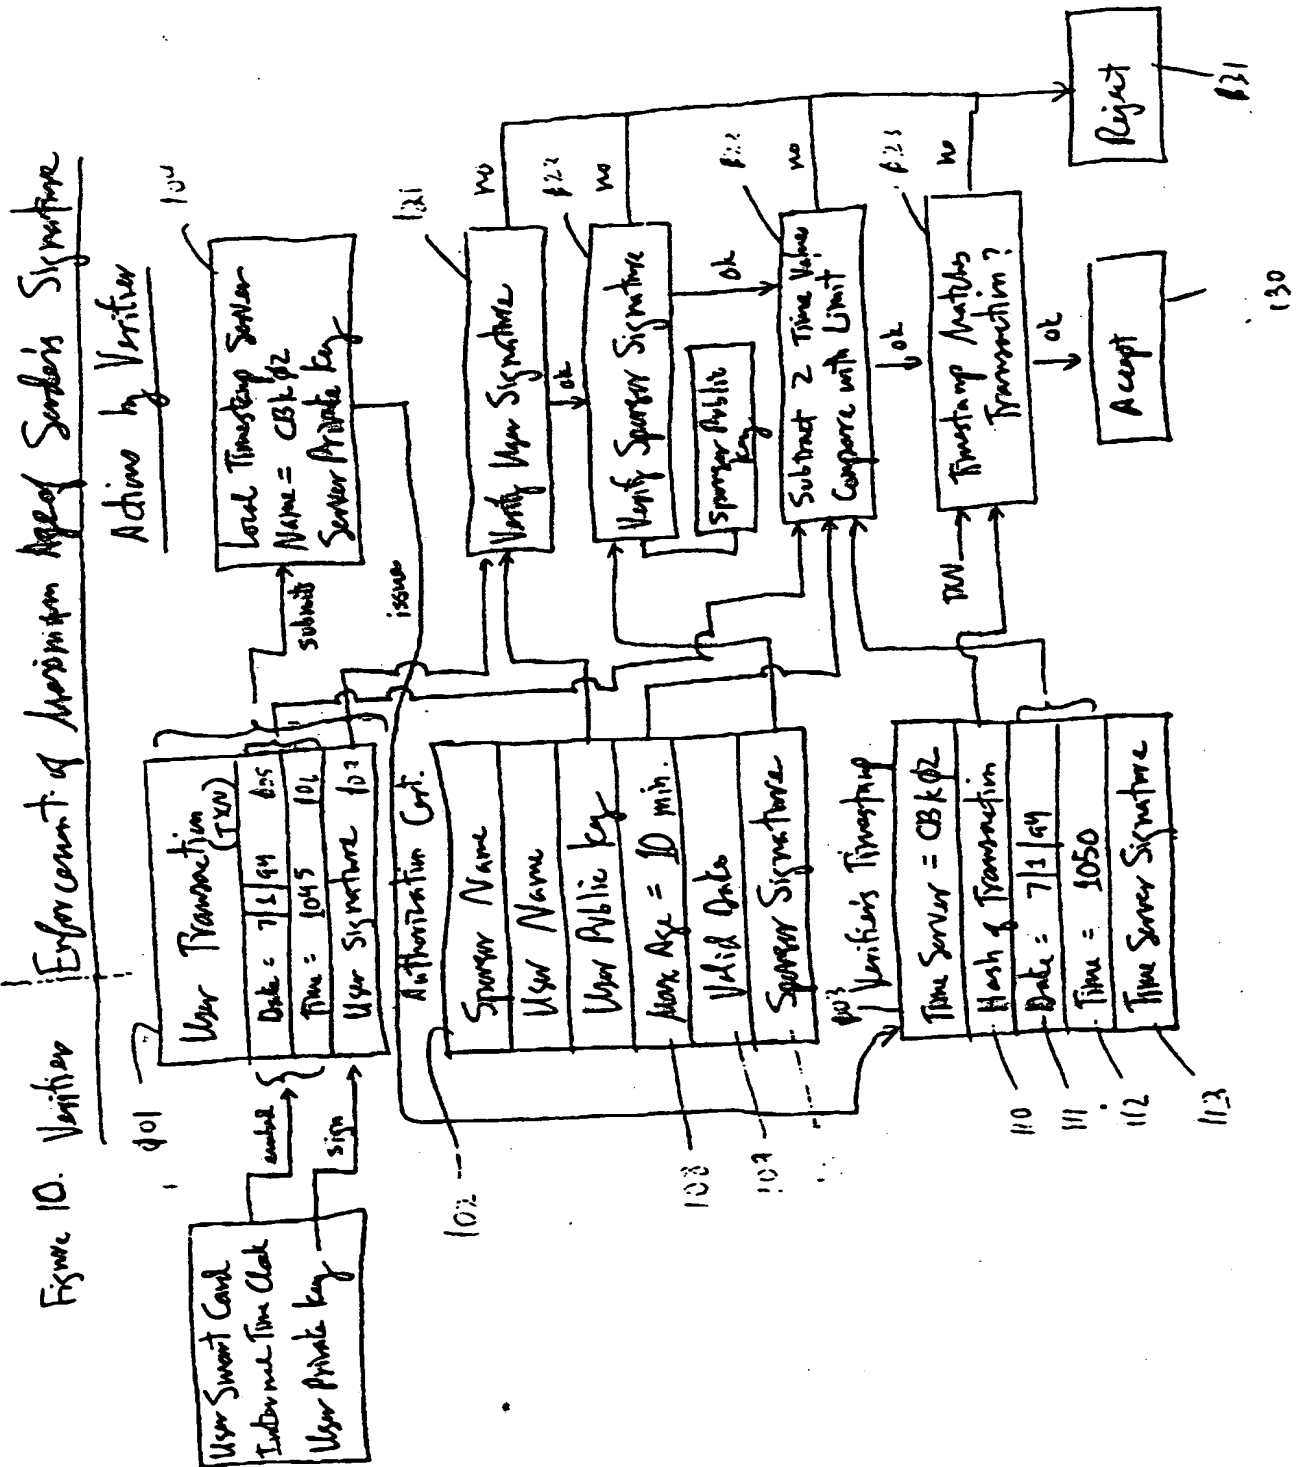 Figure 10. Verifier Enforcement of Maximum Age of Sender's Signature
Actions by Verifier
User Smart Card
Internal Time Clock
User Private Key
embed
sign
101
User Transaction
(TXN)
Date = 7/1/94
Time = 1045 106
User Signature 107
submits
issues
104
Local Timestamp Server
Name = CBKØ2
Server Private Key
102
Authorization Cert.
Sponsor Name
User Name
User Public Key
Max Age = 10 min.
Valid Dates
Sponsor Signature
108
103 Verifier's Timestamp
Time Server = CBKØ2
Hash of Transaction
Date = 7/1/94
Time = 1050
Time Server Signature
110
111
112
113
121
Verify User Signature
no
ok
Verify Sponsor Signature
no
ok
Sponsor Public
Key
Subtract 2 Time Values
Compare with Limit
no
ok
TXN
Timestamp Matches
Transaction?
no
ok
Accept
130
Reject